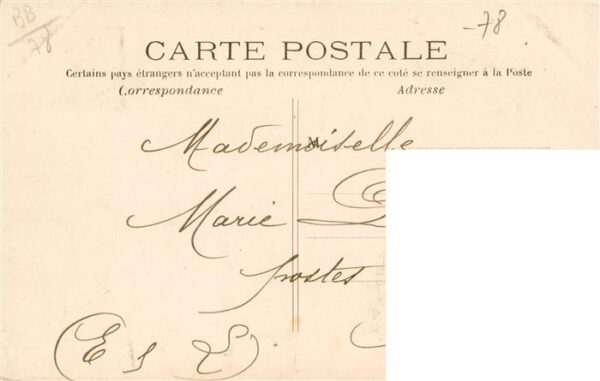 BB
78
-78
CARTE POSTALE
Certains pays étrangers n'acceptant pas la correspondance de ce coté se renseigner à la Poste
Correspondance Adresse
Mademoiselle
Marie
Postes
(E & L)